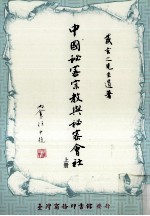 戴玄之先生遺著
中國祕密宗教與祕密會社
上冊
臺灣商務印書館發行